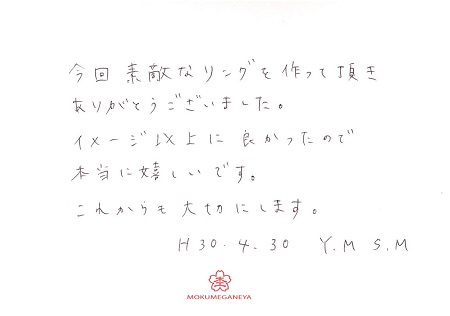 今回 素敵なリングを作って頂き
ありがとうございました。
イメージ以上に良かったので
本当に嬉しいです。
これからも大切にします。
H30.4.30 Y.M S.M
MOKUMEGANEYA